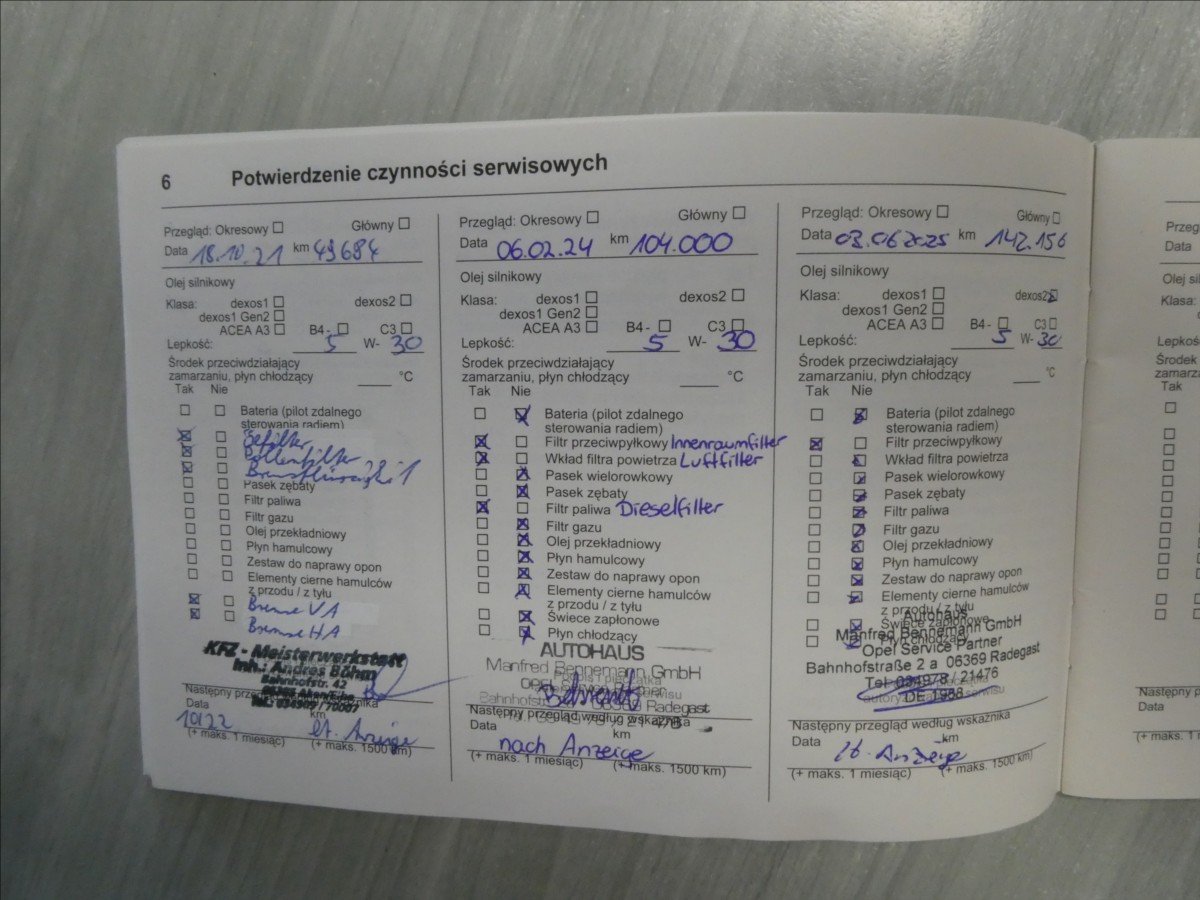 6 Potwierdzenie czynności serwisowych
Przegląd: Okresowy Główny
Data 18.10.21 km 49684
Olej silnikowy
Klasa: dexos1 dexos2
dexos1 Gen2
ACEA A3 B4- C3
Lepkość: 5 W- 30
Środek przeciwdziałający
zamarzaniu, płyn chłodzący °C
Tak Nie
Bateria (pilot zdalnego
sterowania radiem)
Pollenfilter
Pasek zębaty
Filtr paliwa
Filtr gazu
Olej przekładniowy
Płyn hamulcowy
Zestaw do naprawy opon
Elementy cierne hamulców
z przodu / z tyłu
Bremse VA
Bremse HA
KFZ - Meisterwerkstatt
Inh.: Andres Böhm
Bahnhofstr. 42
06385 Aken/Elbe
Tel.: 034909 / 70007
Następny
Data 10/22 km lt. Anzeige
(+ maks. 1 miesiąc) (+ maks. 1500 km)
Przegląd: Okresowy Główny
Data 06.02.24 km 104.000
Olej silnikowy
Klasa: dexos1 dexos2
dexos1 Gen2
ACEA A3 B4- C3
Lepkość: 5 W- 30
Środek przeciwdziałający
zamarzaniu, płyn chłodzący °C
Tak Nie
Bateria (pilot zdalnego
sterowania radiem)
Filtr przeciwpyłkowy Innenraumfilter
Wkład filtra powietrza Luftfilter
Pasek wielorowkowy
Pasek zębaty
Filtr paliwa Dieselfilter
Filtr gazu
Olej przekładniowy
Płyn hamulcowy
Zestaw do naprawy opon
Elementy cierne hamulców
z przodu / z tyłu
Świece zapłonowe
Płyn chłodzący
AUTOHAUS
Manfred Bennemann GmbH
Następny przegląd według wskaźnika
Data km
nach Anzeige
(+ maks. 1 miesiąc) (+ maks. 1500 km)
Przegląd: Okresowy Główny
Data 03.06.2025 km 142.156
Olej silnikowy
Klasa: dexos1 dexos2
dexos1 Gen2
ACEA A3 B4- C3
Lepkość: 5 W- 30
Środek przeciwdziałający
zamarzaniu, płyn chłodzący °C
Tak Nie
Bateria (pilot zdalnego
sterowania radiem)
Filtr przeciwpyłkowy
Wkład filtra powietrza
Pasek wielorowkowy
Pasek zębaty
Filtr paliwa
Filtr gazu
Olej przekładniowy
Płyn hamulcowy
Zestaw do naprawy opon
Elementy cierne hamulców
z przodu / z tyłu
Świece zapłonowe
Autohaus
Manfred Bennemann GmbH
Opel Service Partner
Bahnhofstraße 2 a 06369 Radegast
Tel. 034978 / 21476
DE 1988
Następny przegląd według wskaźnika
Data km
lt. Anzeige
(+ maks. 1 miesiąc) (+ maks. 1500 km)
Data
Klasa:
Lepkość
Środek
Tak
Data